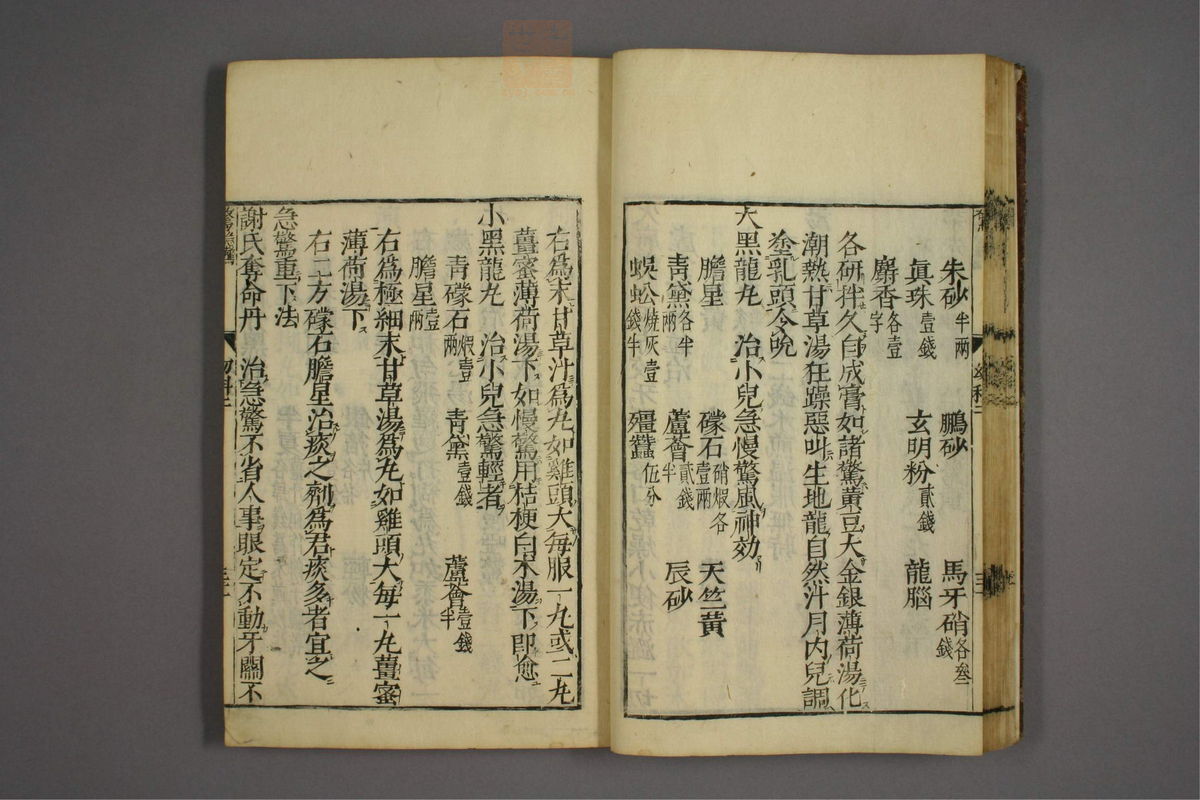 朱砂半兩 鵬砂 馬牙硝各叁錢
眞珠壹錢 玄明粉貳錢 龍腦
麝香各壹字
各研拌久自成膏如諸驚黄豆大金銀薄荷湯化
潮熱甘草湯狂躁惡叫生地龍自然汁月内兒調
塗乳頭令吮
大黑龍丸 治小兒急慢驚風神効
膽星 礞石硝煆各壹兩 天竺黄
青黛各半兩 蘆薈貳錢半 辰砂
蜈蚣燒灰壹錢半 殭蠶伍分
右爲末甘草汁爲丸如雞頭大每服一丸或二丸
薑蜜薄荷湯下如慢驚用桔梗白术湯下即愈
小黑龍丸 治小兒急驚輕者
青礞石煆壹兩 青黛壹錢 蘆薈壹錢半
膽星壹兩
右爲極細末甘草湯爲丸如雞頭大每一丸薑蜜
薄荷湯下
右二方礞石膽星治痰之劑爲君痰多者宜之
急驚重下法
謝氏奪命丹 治急驚不省人事眼定不動牙關不